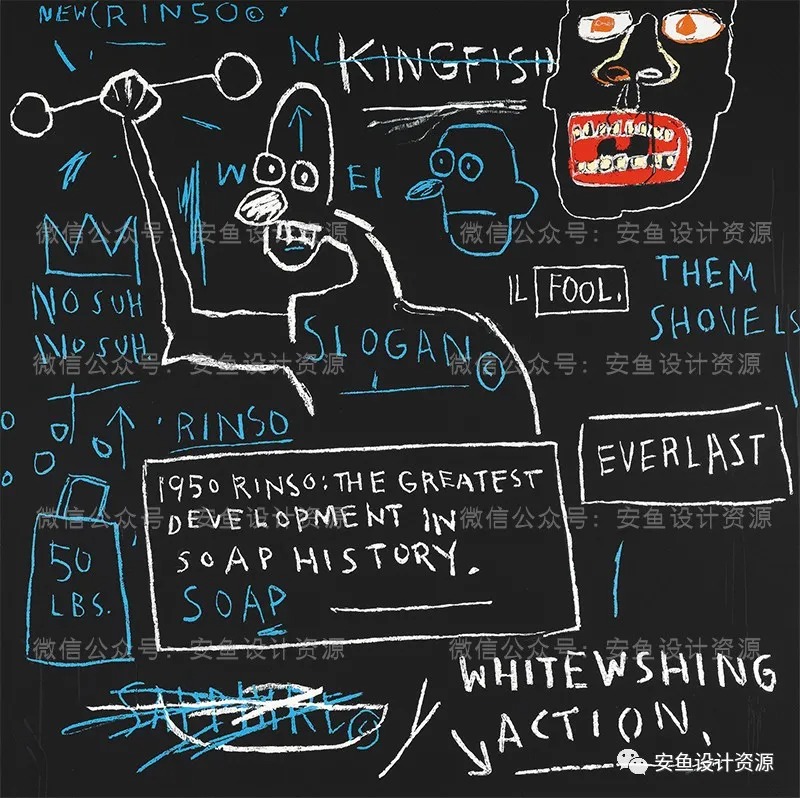 NEW(RINSO©
N KINGFISH
W EI
NO SUH
NO SUH
IL FOOL.
THEM
SHOVELS
SLOGAN ©
'RINSO
EVERLAST
1950 RINSO: THE GREATEST
DEVELOPMENT IN
SOAP HISTORY.
SOAP
50
LBS.
SAPPHIRE©
WHITEWSHING
ACTION.
微信公众号：安鱼设计资源
微信公众号：安鱼设计资源
微信公众号：安鱼设计资源
微信公众号：安鱼设计资源
微信公众号：安鱼设计资源
微信公众号：安鱼设计资源
微信公众号：安鱼设计资源
微信公众号：安鱼设计资源
安鱼设计资源